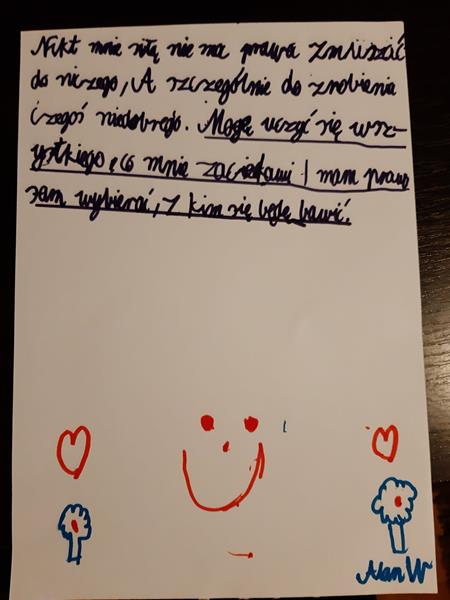 Nikt mnie siłą nie ma prawa zmuszać
do niczego, A szczególnie do zrobienia
czegoś niedobrego. Mogę uczyć się wsz-
ystkiego, co mnie zaciekawi I mam prawo
sam wybierać, z kim się będę bawić.
Alan W